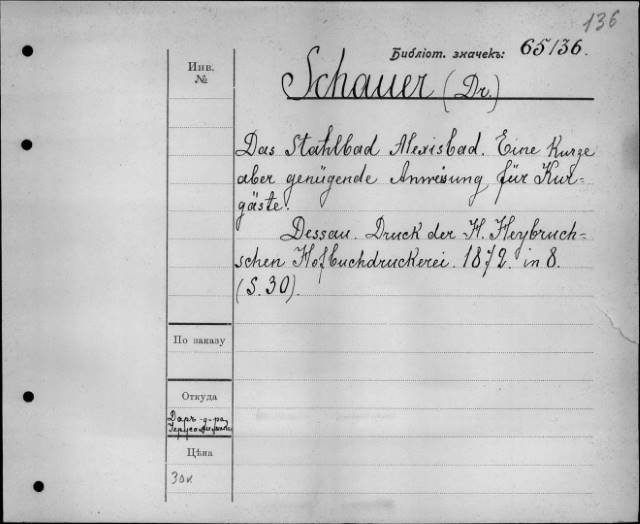 136
Библіот. значекъ: 65/36.
Инв.
№
Schauer (Dr.)
Das Stahlbad Alexisbad. Eine Kurze
aber genügende Anweisung für Kur=
gäste.
Dessau. Druck der H. Heybruch=
schen Hofbuchdruckerei. 1872. in 8.
(S. 30).
По заказу
Откуда
Даръ д-ра
Цѣна
30к.